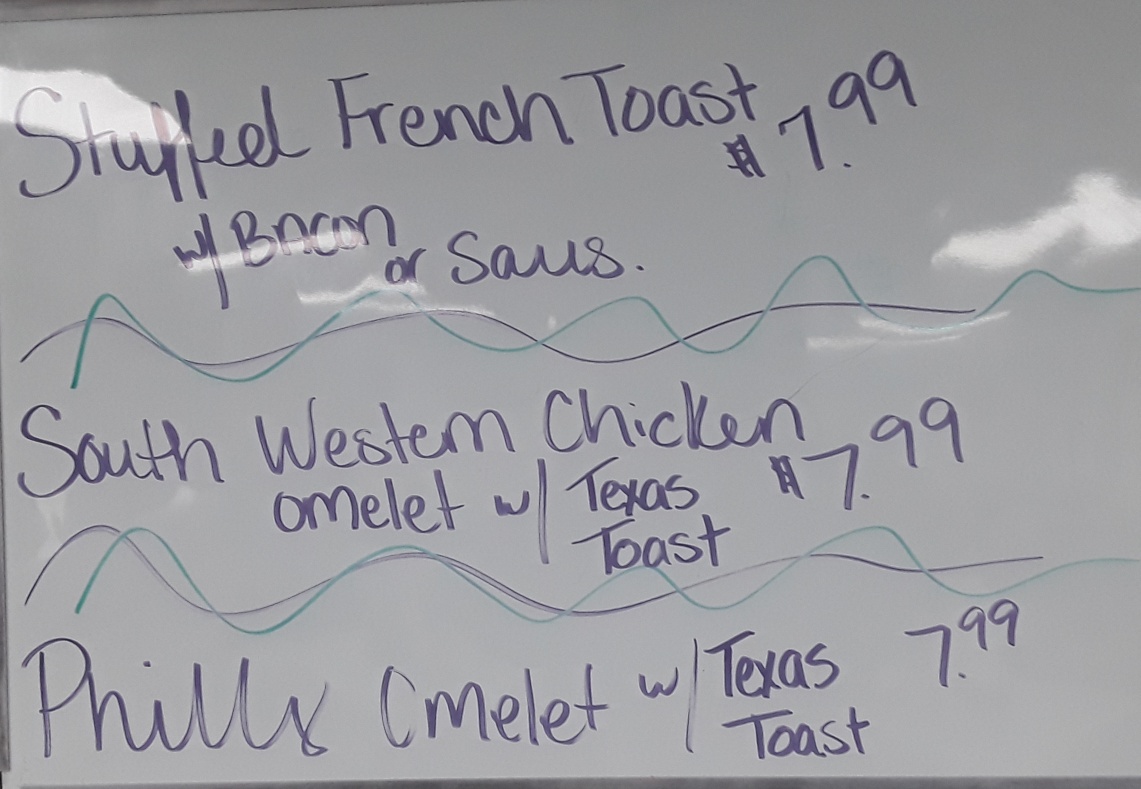 Stuffed French Toast $7.99
w/ Bacon or Saus.
South Western Chicken $7.99
omelet w/ Texas
Toast
Philly Omelet w/ Texas 7.99
Toast